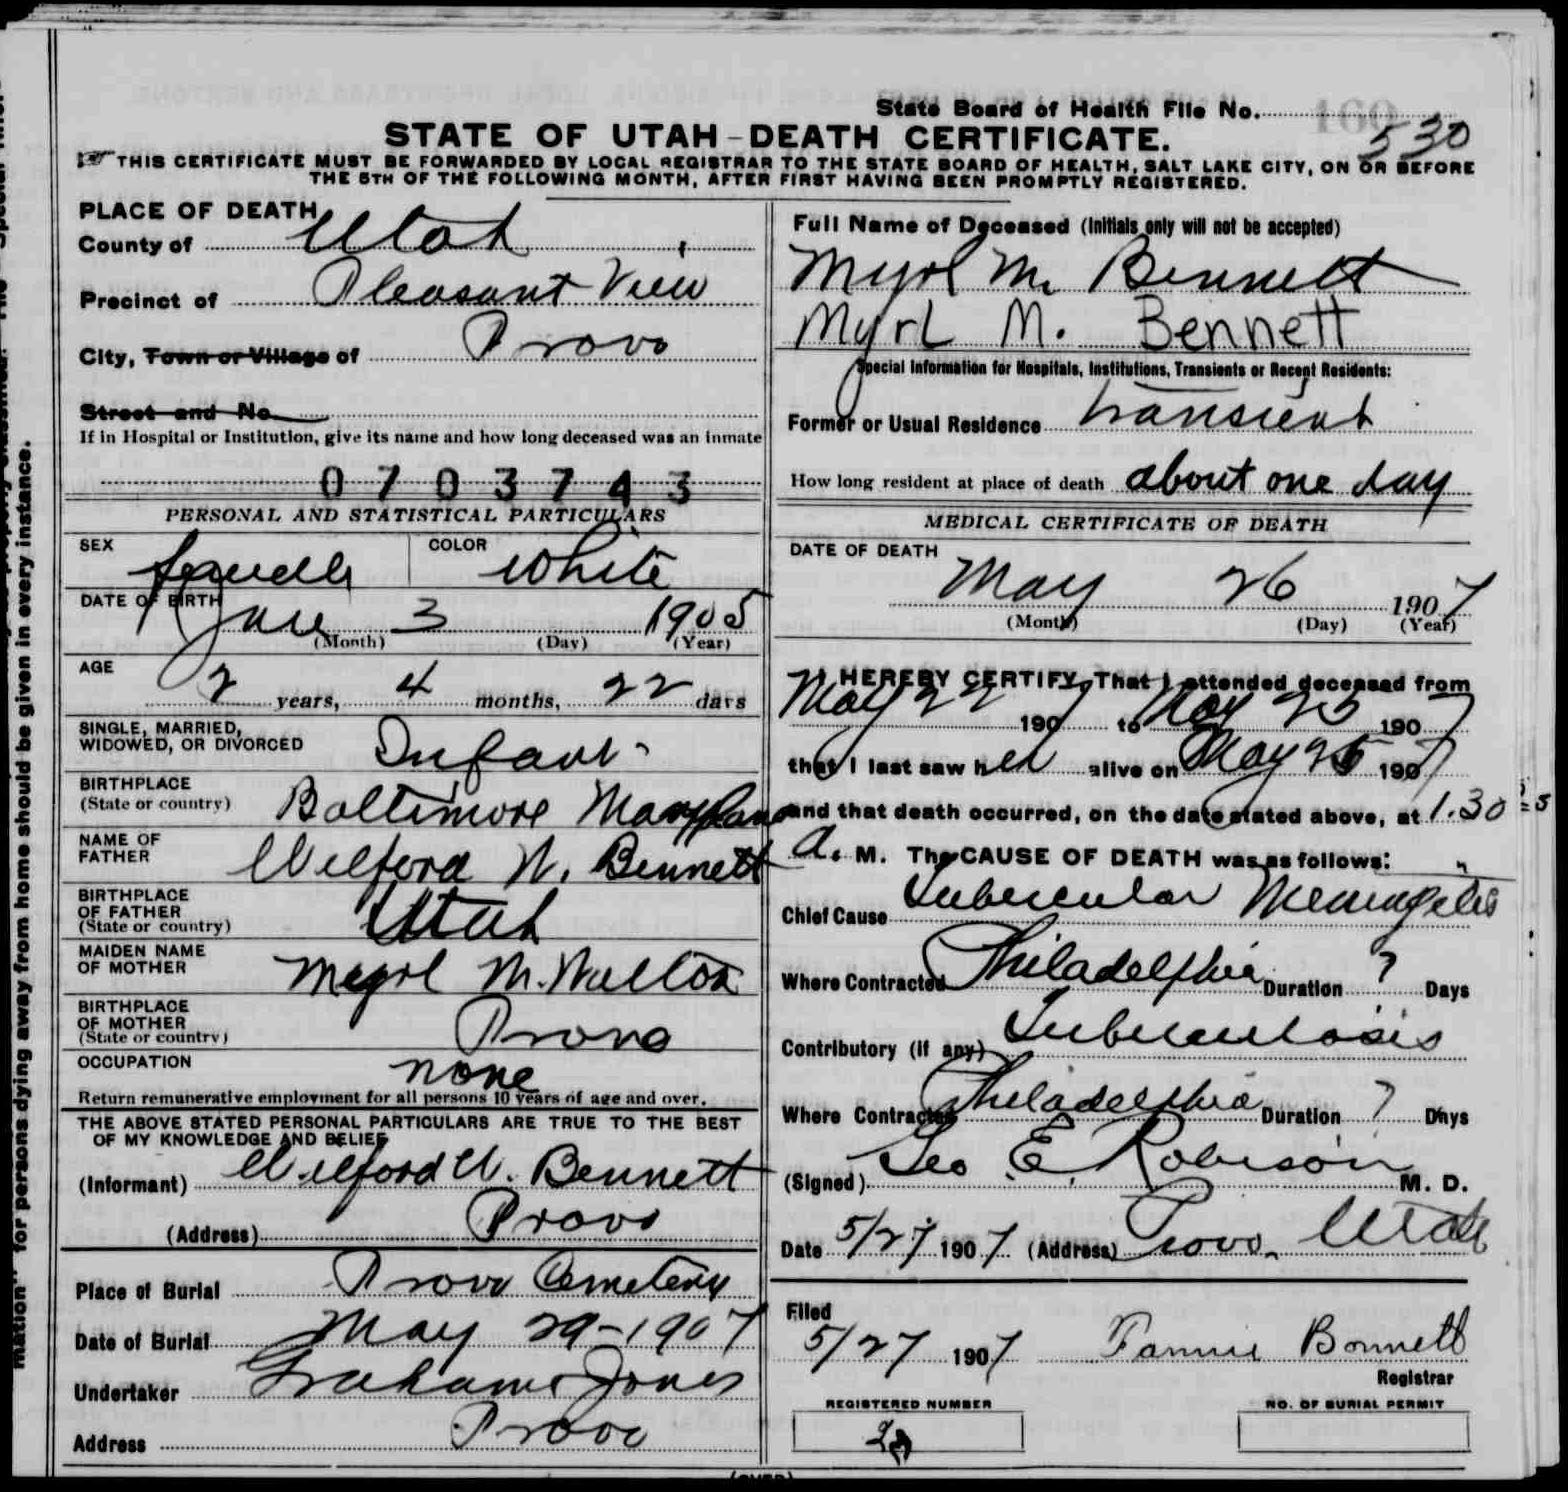 State Board of Health File No.
530
STATE OF UTAH-DEATH CERTIFICATE.
THIS CERTIFICATE MUST BE FORWARDED BY LOCAL REGISTRAR TO THE STATE BOARD OF HEALTH, SALT LAKE CITY, ON OR BEFORE
THE 5TH OF THE FOLLOWING MONTH, AFTER FIRST HAVING BEEN PROMPTLY REGISTERED.
PLACE OF DEATH
County of Utah
Precinct of Pleasant View
City, Town or Village of Provo
Street and No.
If in Hospital or Institution, give its name and how long deceased was an inmate
0703743
PERSONAL AND STATISTICAL PARTICULARS
SEX female COLOR White
DATE OF BIRTH
Jan 3 1905
(Month) (Day) (Year)
AGE
2 years, 4 months, 22 days
SINGLE, MARRIED,
WIDOWED, OR DIVORCED Infant
BIRTHPLACE
(State or country) Baltimore Maryland
NAME OF
FATHER Wilford W. Bennett
BIRTHPLACE
OF FATHER
(State or country) Utah
MAIDEN NAME
OF MOTHER M.
BIRTHPLACE
OF MOTHER
(State or country) Provo
OCCUPATION none
Return remunerative employment for all persons 10 years of age and over.
THE ABOVE STATED PERSONAL PARTICULARS ARE TRUE TO THE BEST
OF MY KNOWLEDGE AND BELIEF
(Informant) Wilford W. Bennett
(Address) Provo
Place of Burial Provo Cemetery
Date of Burial May 29-1907
Undertaker Graham Jones
Address Provo
Full Name of Deceased (Initials only will not be accepted)
Myrl M. Bennett
Myrl M. Bennett
Special Information for Hospitals, Institutions, Transients or Recent Residents:
Former or Usual Residence transient
How long resident at place of death about one day
MEDICAL CERTIFICATE OF DEATH
DATE OF DEATH
May 26 1907
(Month) (Day) (Year)
I HEREBY CERTIFY, That I attended deceased from
May 22 1907 to May 25 1907
that I last saw her alive on May 25 1907
and that death occurred, on the date stated above, at 1.30
A. M. The CAUSE OF DEATH was as follows:
Chief Cause Tubercular Meningetis
Where Contracted Philadelphia Duration ? Days
Contributory (if any) Tuberculosis
Where Contracted Philadelphia Duration ? Days
(Signed) Geo E. Robison M. D.
Date 5/27 1907 (Address) Provo, Utah
Filed
5/27 1907 Fannie Bonnett
Registrar
REGISTERED NUMBER
NO. OF BURIAL PERMIT
(OVER)
mation" for persons dying away from home should be given in every instance.